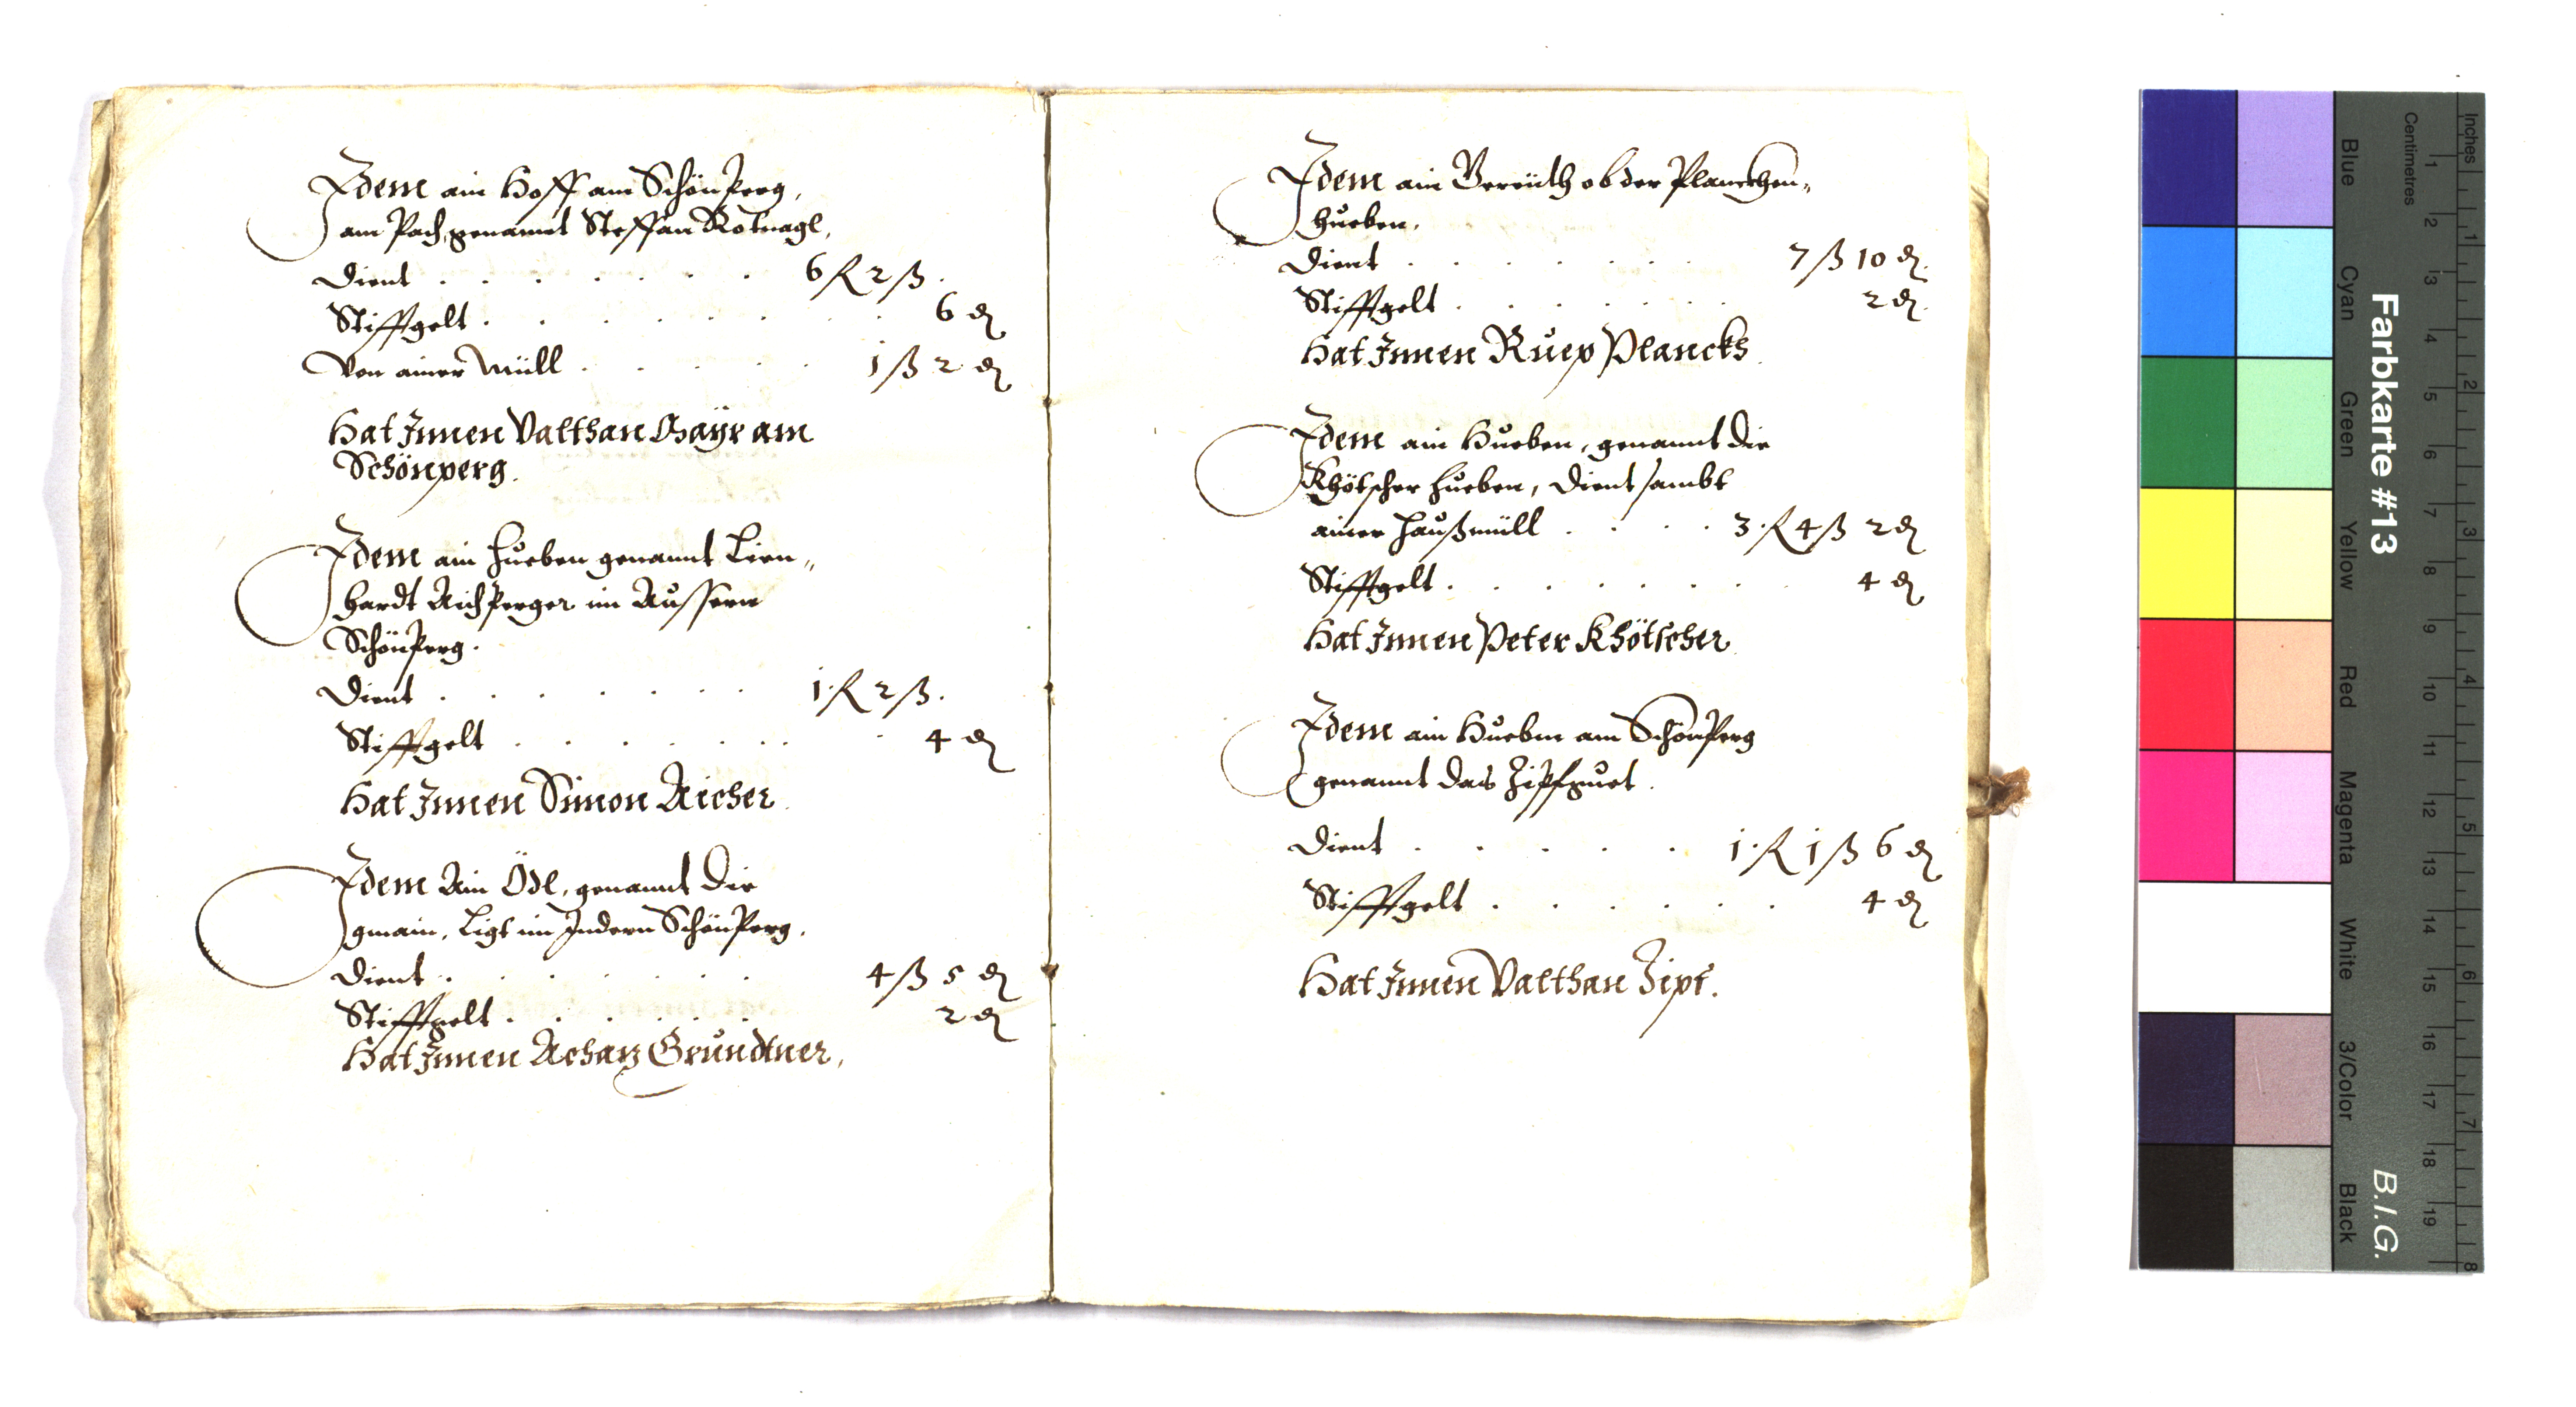 Idem ain Hoff am Schönperg,
am Pach, genannt Steffan Rotnagl,
dient . . . . . . . 6 fl 2 ß.
Stifftgelt . . . . . . . 6 ₰
Von ainer Müll . . . . . 1 ß 2 ₰
Hat Innen Valthan Mayr am
Schönperg.
Idem ain Hueben genannt Lien„
hardt Aichperger im Aussern
Schönperg.
Dient . . . . . . . 1 fl 2 ß.
Stifftgelt . . . . . . . 4 ₰
Hat Innen Simon Aicher.
Idem Ain Ödl, genannt die
gmain, Ligt im Indern Schönperg,
dient . . . . . . . 4 ß 5 ₰
Stifftgelt . . . . . . 2 ₰
Hat Innen Achatz Gründtner,
Idem ain Gereüth ob der Planckhen„
hueben.
dient . . . . . . . 7 ß 10 ₰.
Stifftgelt . . . . . . . 2 ₰.
Hat Innen Ruep Planckh
Idem ain Hueben, genannt die
Khötscher hueben, dient sambt
ainer Haußmüll . . . . 3 fl 4 ß 2 ₰
Stifftgelt . . . . . . . 4 ₰
Hat Innen Peter Khötscher
Idem ain Hueben am Schönperg
genannt das Zipfguet.
Dient . . . . . 1 fl 1 ß 6 ₰
Stifftgelt . . . . . . 4 ₰
Hat Innen Valthan Zipf.
Farbkarte #13
B.I.G.
Blue
Cyan
Green
Yellow
Red
Magenta
White
3/Color
Black
Centimetres
1 2 3 4 5 6 7 8 9 10 11 12 13 14 15 16 17 18 19
Inches
1 2 3 4 5 6 7 8